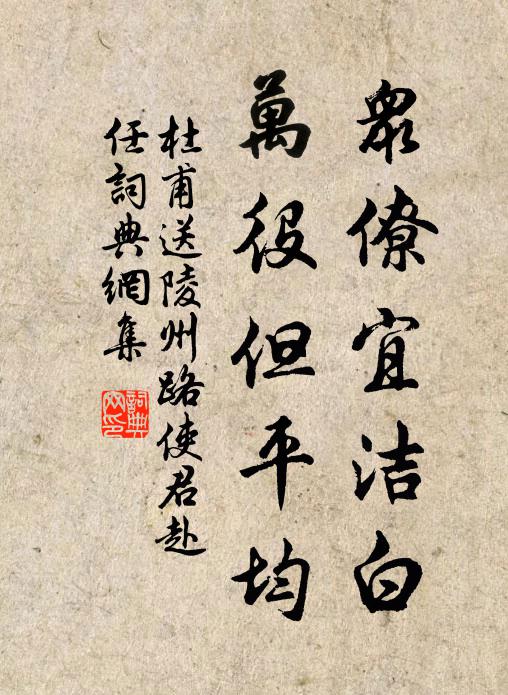 眾僚宜洁白
萬役但平均
杜甫送陵州路使君赴
任詞典網集
詞典
网印